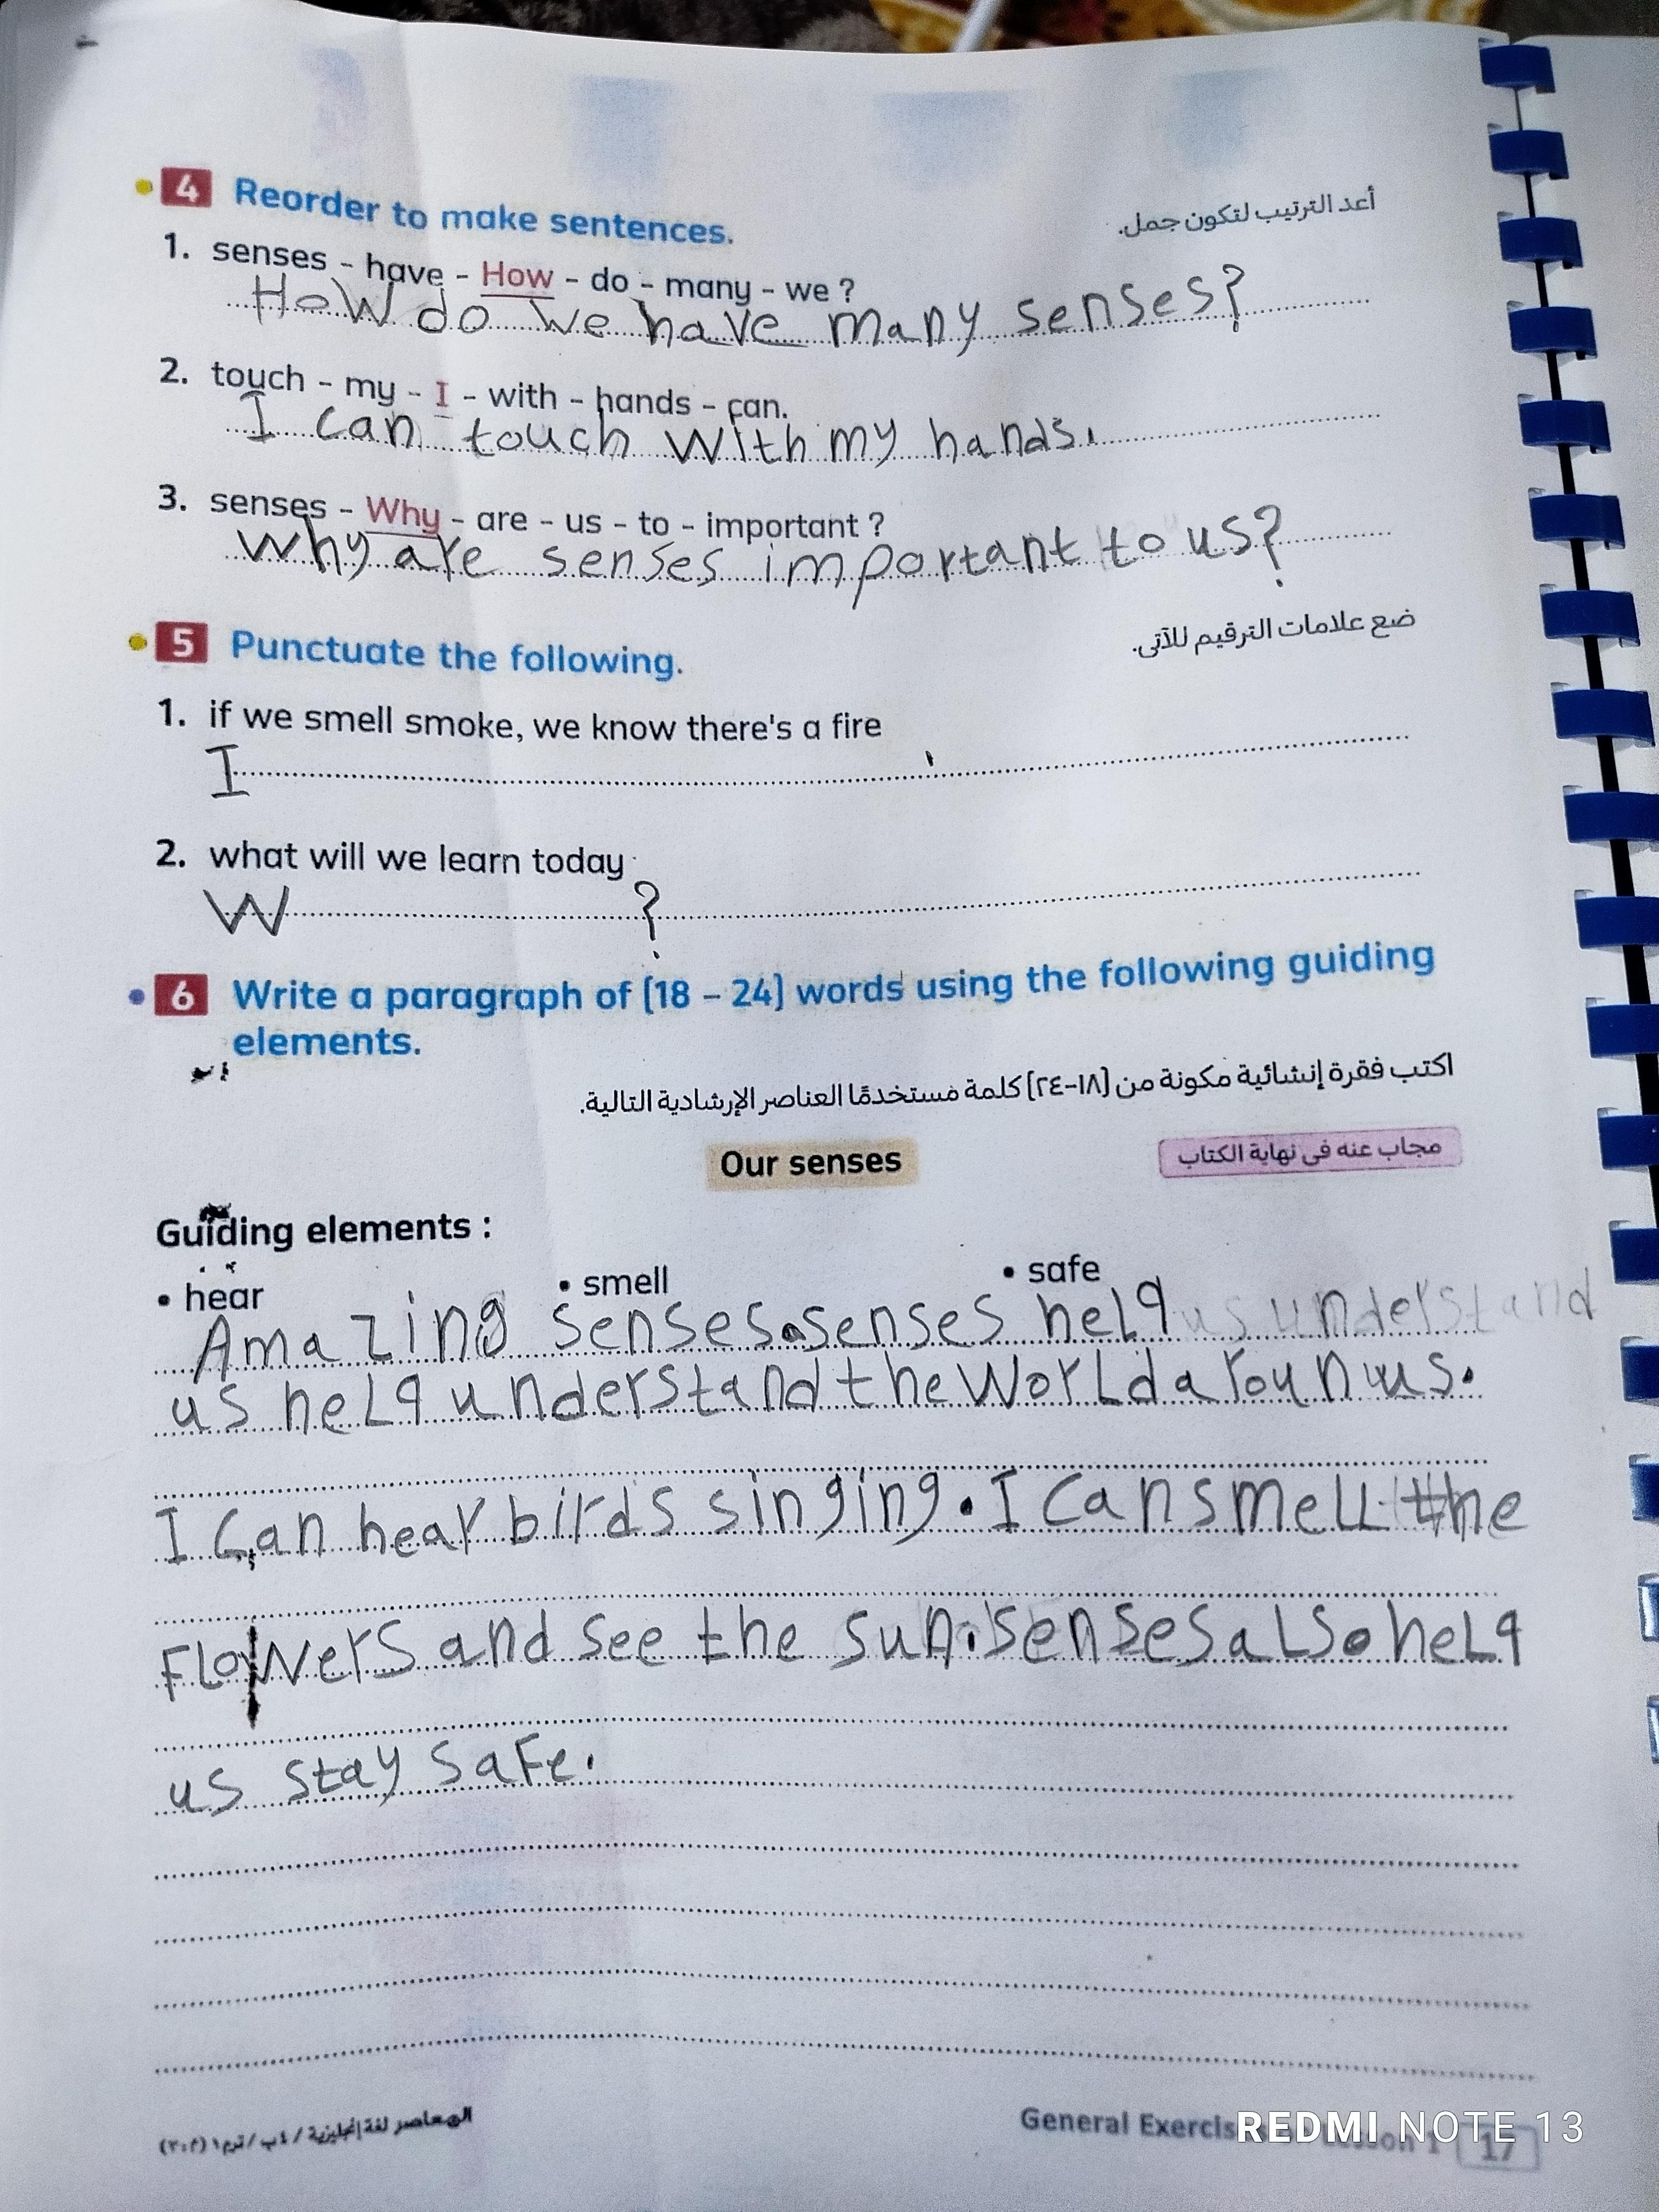 4 Reorder to make sentences.
أعد الترتيب لتكون جمل.
1. senses - have - How - do - many - we ?
How do we have many senses?
2. touch - my - I - with - hands - can.
I can touch with my hands.
3. senses - Why - are - us - to - important ?
Why are senses important to us?
5 Punctuate the following.
ضع علامات الترقيم للآتى.
1. if we smell smoke, we know there's a fire
I
2. what will we learn today
W ?
6 Write a paragraph of (18 - 24) words using the following guiding
elements.
اكتب فقرة إنشائية مكونة من (١٨-٢٤) كلمة مستخدمًا العناصر الإرشادية التالية.
Our senses
مجاب عنه فى نهاية الكتاب
Guiding elements :
• hear • smell • safe
Amazing senses.senses help us understand
us help understand the world aroun us.
I Can hear birds singing. I can smell the
Flowers and see the sun.senses also help
us stay safe.
المعاصر لغة إنجليزية / ٤ب / ترم١ (م:٣)
General 17
REDMI NOTE 13